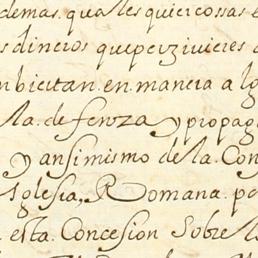 demas, quales quier cossas e
s dineros que perzivieres d
n bicitan. en manera alg
la. defenza y propag
y ansimismo de la. Con
Iglesia, Romana. pa
esta. Concesion Sobre l